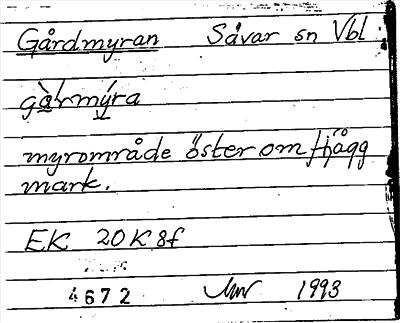 Gårdmyran Sävar sn Vbl
myrområde öster om Hjågg
mark.
EK 20K 8f
4672 1993